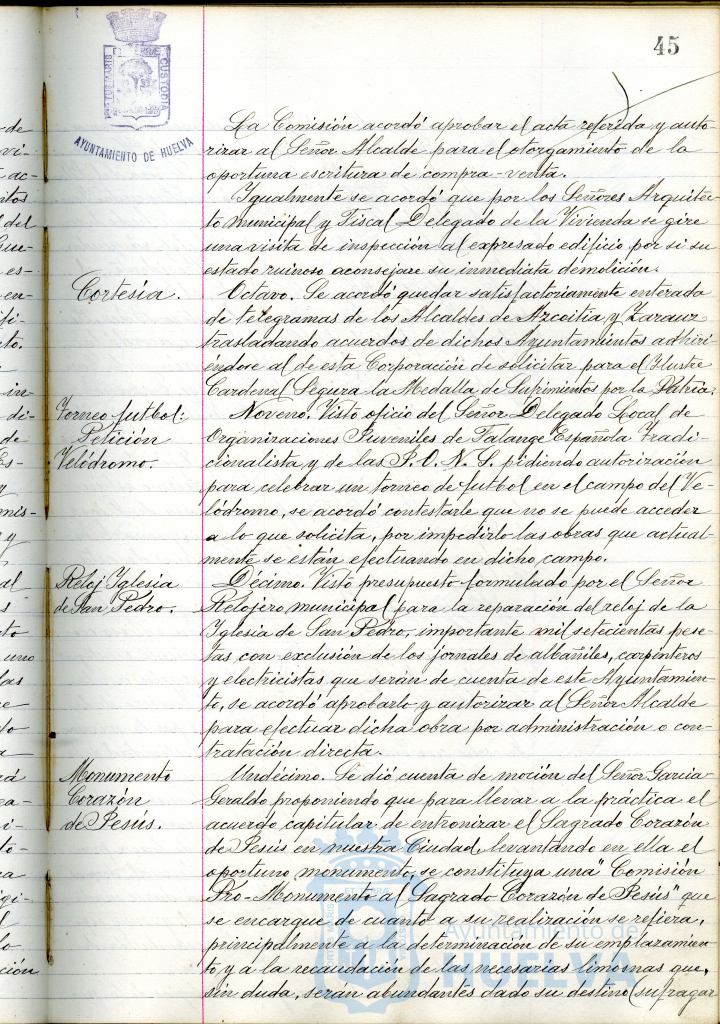 45
AYUNTAMIENTO DE HUELVA
La Comisión acordó aprobar el acta referida y auto-
rizar al Señor Alcalde para el otorgamiento de la
oportuna escritura de compra-venta.
Igualmente se acordó que por los Señores Arquitec-
to Municipal y Fiscal Delegado de la Vivienda se gire
una visita de inspección al expresado edificio por si su
estado ruinoso aconsejare su inmediata demolición.
Cortesía.
Octavo. Se acordó quedar satisfactoriamente enterada
de telegramas de los Alcaldes de Azcoitia y Zarauz
trasladando acuerdos de dichos Ayuntamientos adhiri-
éndose al de esta Corporación de solicitar para el Ilustre
Cardenal Segura la Medalla de Sufrimientos por la Patria.
Torneo futbol:
Petición
Velódromo.
Noveno. Visto oficio del Señor Delegado Local de
Organizaciones Juveniles de Falange Española Tradi-
cionalista y de las J.O.N.S. pidiendo autorización
para celebrar un torneo de futbol en el campo del Ve-
lódromo, se acordó contestarle que no se puede acceder
a lo que solicita, por impedirlo las obras que actual-
mente se están efectuando en dicho campo.
Reloj Iglesia
de San Pedro.
Décimo. Visto presupuesto formulado por el Señor
Relojero municipal para la reparación del reloj de la
Iglesia de San Pedro, importante mil setecientas pese-
tas con exclusión de los jornales de albañiles, carpinteros
y electricistas que serán de cuenta de este Ayuntamien-
to, se acordó aprobarlo y autorizar al Señor Alcalde
para efectuar dicha obra por administración o con-
tratación directa.
Monumento
Corazón
de Jesús.
Undécimo. Se dió cuenta de moción del Señor Garcia
Geraldo proponiendo que para llevar a la práctica el
acuerdo capitular de entronizar el Sagrado Corazón
de Jesús en nuestra Ciudad, levantando en ella el
oportuno monumento, se constituya una "Comisión
Pro-Monumento al Sagrado Corazón de Jesús" que
se encargue de cuanto a su realización se refiera,
principalmente a la determinación de su emplazamien-
to y a la recaudación de las necesarias limosnas que,
sin duda, serán abundantes dado su destino (sufragar
Ayuntamiento de
HUELVA